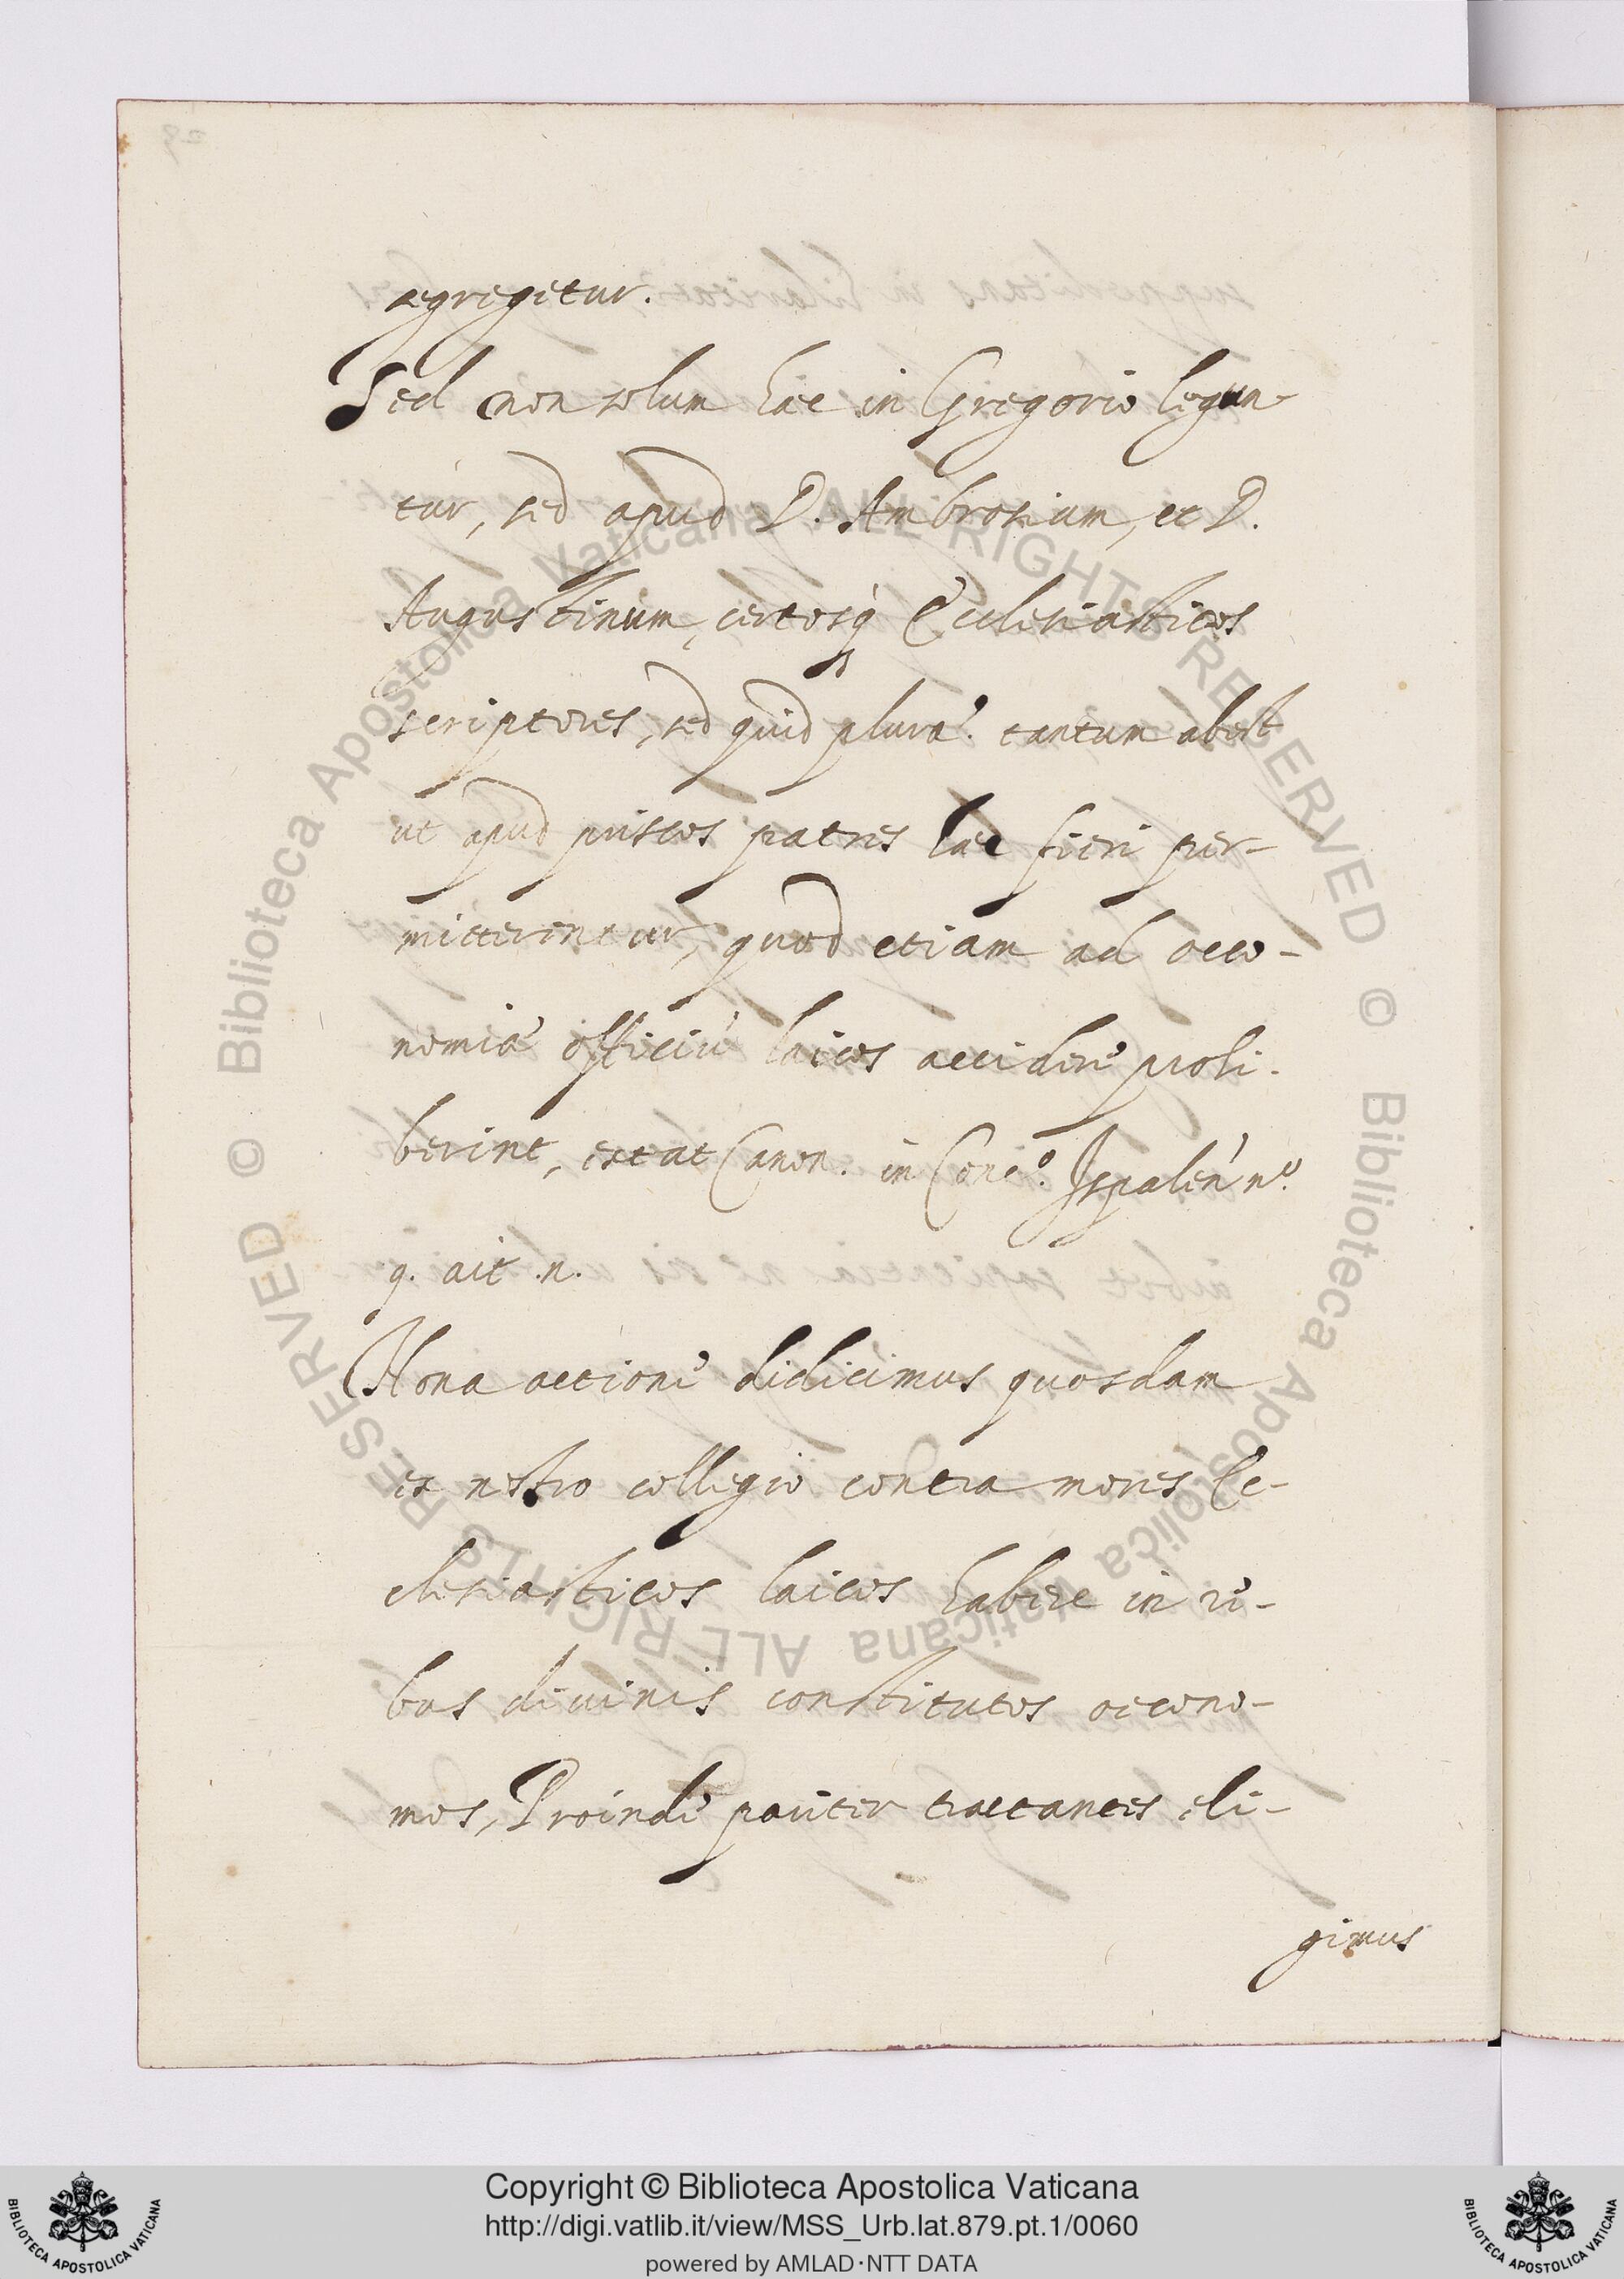 segregetur.
Sed non solum hæc in Gregorio legun-
tur, sed apud D. Ambrosium, et D.
Augustinum, certosq Ecclesiasticos
scriptores, sed quid plura? tantum abest
ut apud priscos patres hæc fieri per-
mitterentur, quod etiam ad oeco-
nomiæ officiũ laicos accidere prohi-
berint, extat Canon. in Conc.º Ispalen̄ nº.
9. ait .n.
Nona actione didicimus quosdam
ex nostro collegio contra mores Ec-
clesiasticos laicos habere in re-
bus diuinis constitutos oecono-
mos, Proinde pariter tractantes eli-
gimus
© Biblioteca Apostolica Vaticana ALL RIGHTS RESERVED © Biblioteca Apostolica Vaticana ALL RIGHTS RESERVED
Copyright © Biblioteca Apostolica Vaticana
http://digi.vatlib.it/view/MSS_Urb.lat.879.pt.1/0060
powered by AMLAD·NTT DATA
BIBLIOTECA APOSTOLICA VATICANA
BIBLIOTECA APOSTOLICA VATICANA